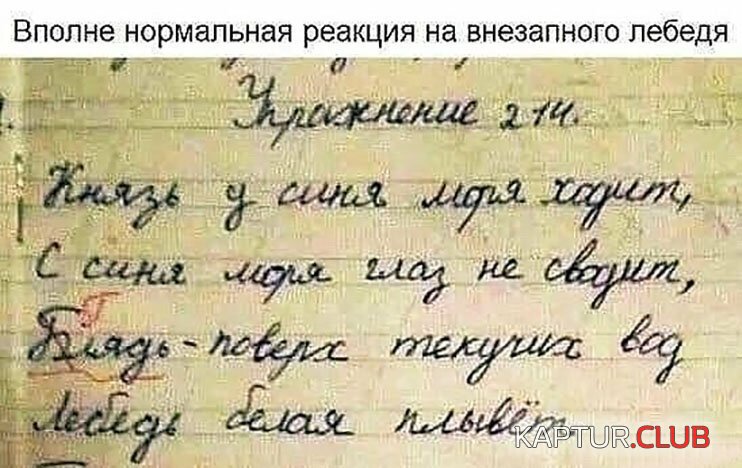 Вполне нормальная реакция на внезапного лебедя
Упражнение 214.
Князь у синя моря ходит,
С синя моря глаз не сводит,
Г
Блядь - поверх текучих вод
Лебедь белая плывёт
KAPTUR.CLUB